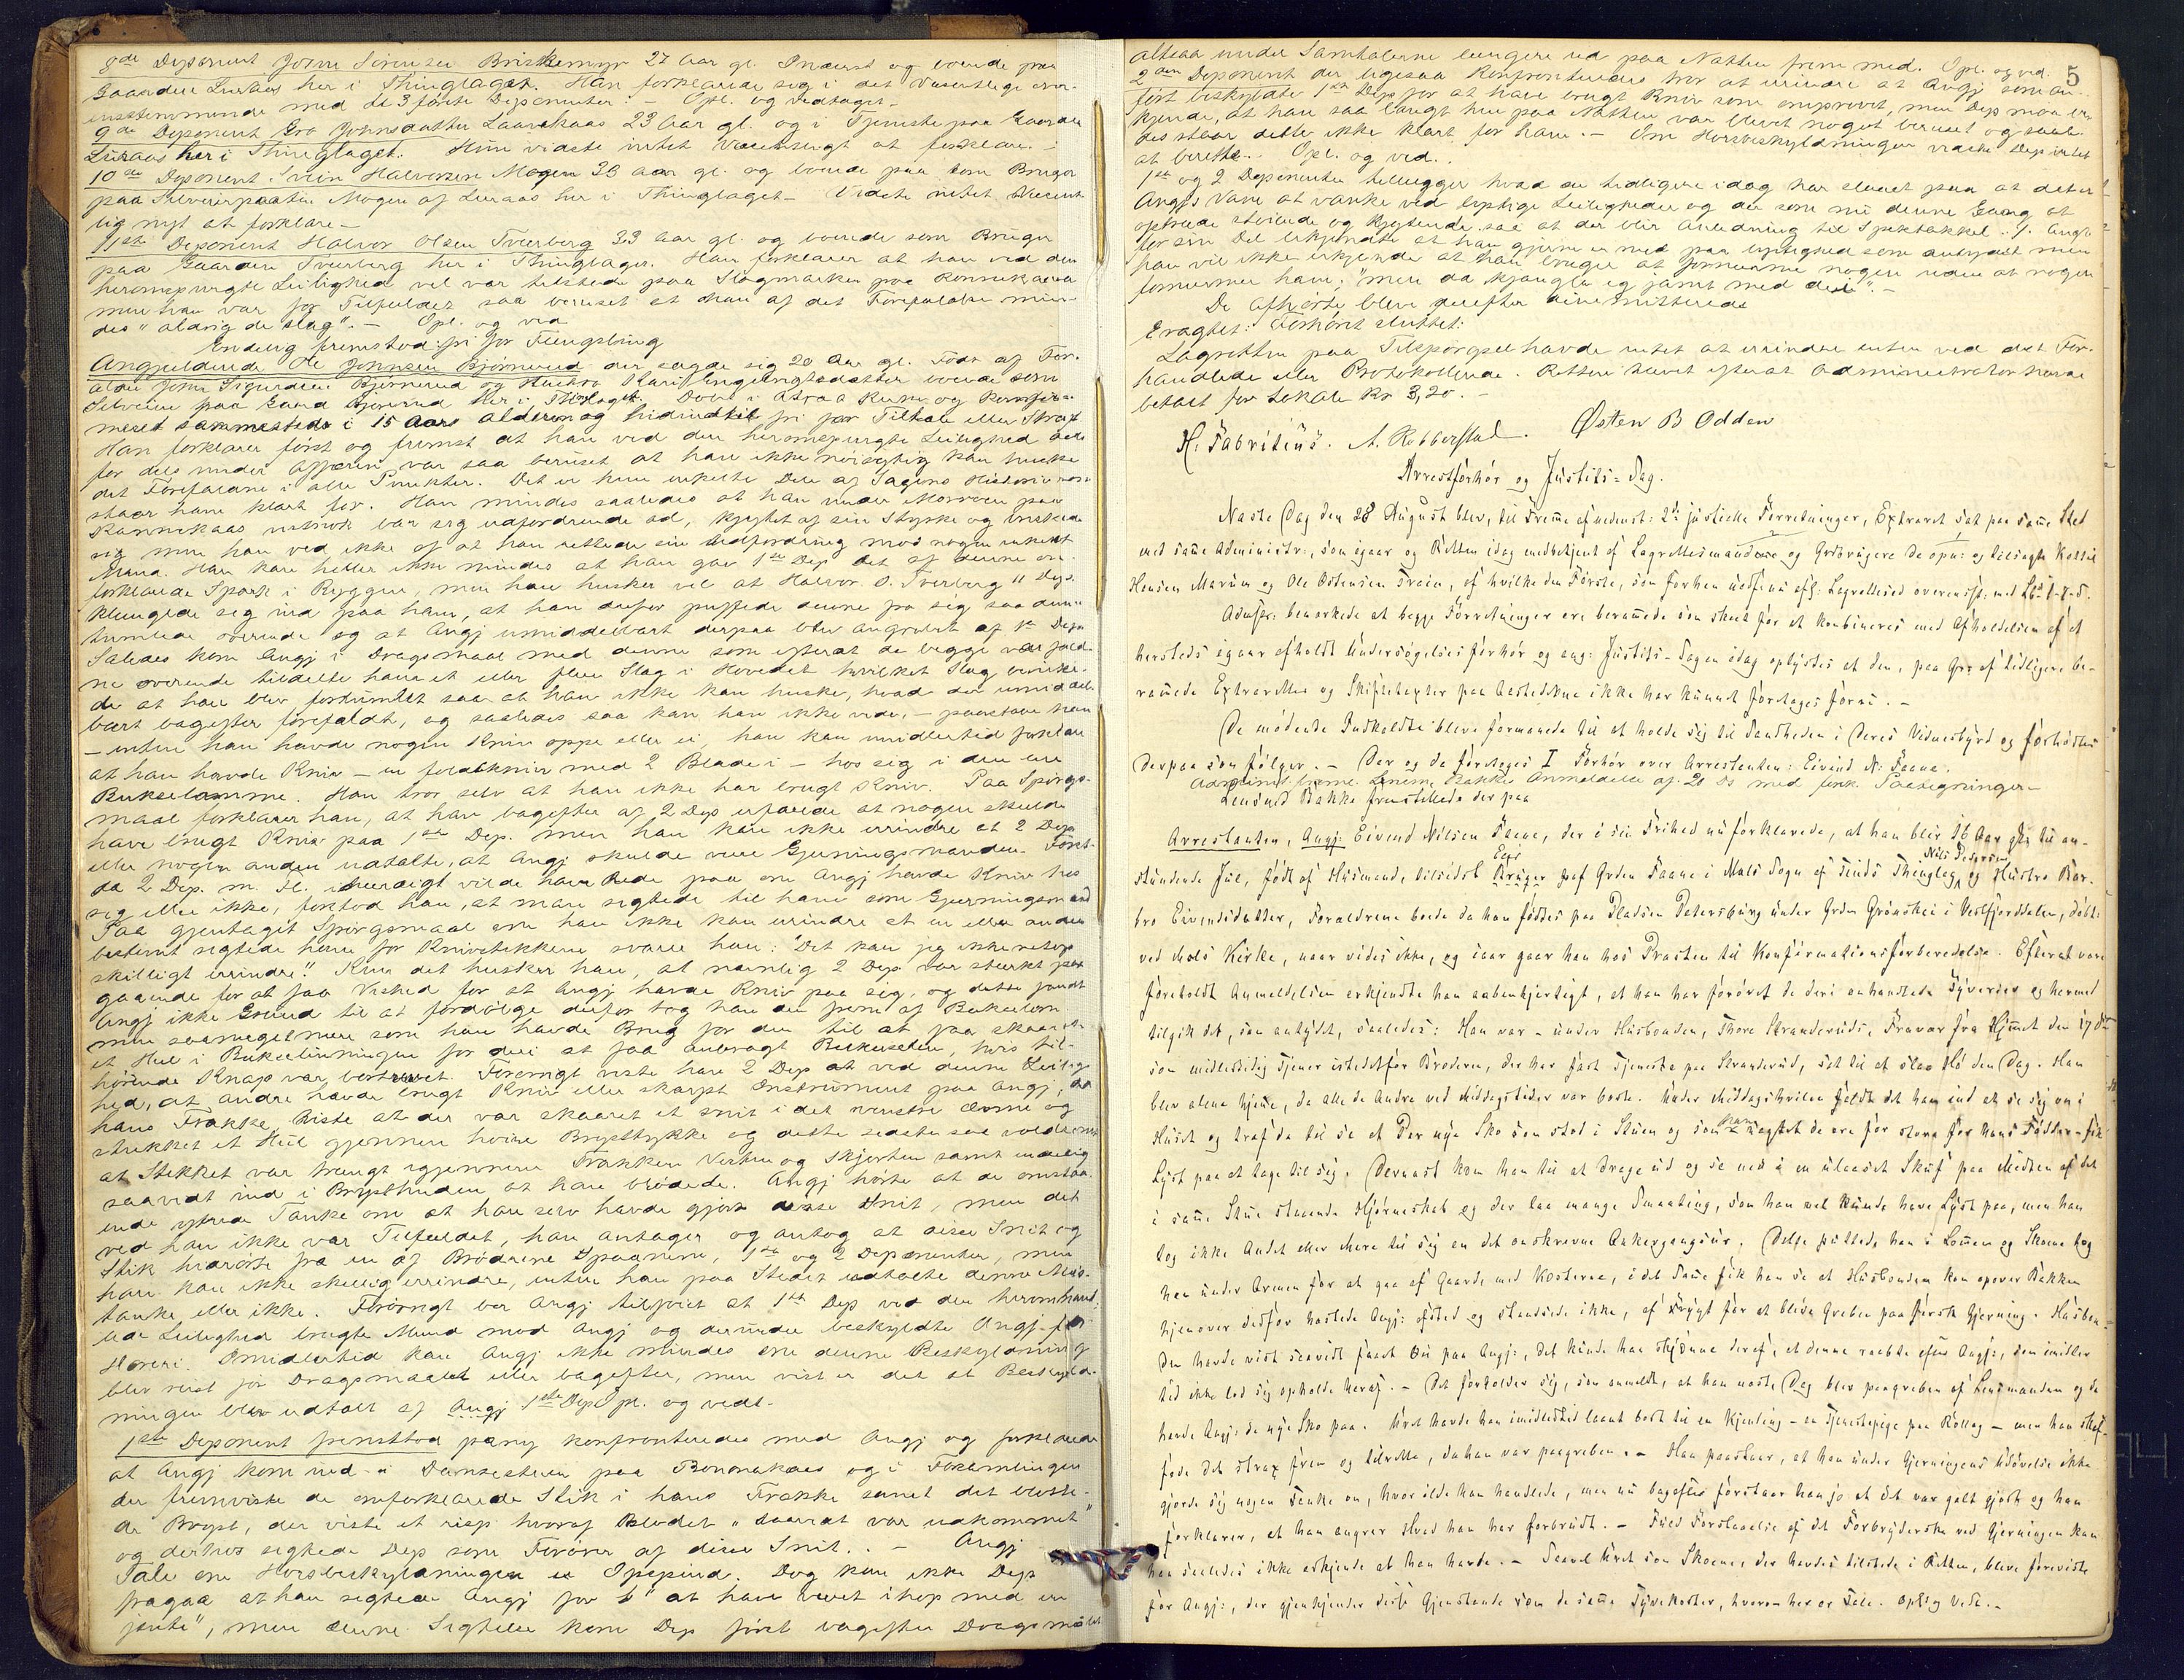 8de Deponent John Sörensen Briskemyr 27 Aar gl. Inderst og boende paa
Gaarden Luraas her i Thinglaget. Han forklarede sig i det Væsentlige over-
ensstemmende med de 3 förste Deponenter: – Opl. og vedtaget.
9de Deponent Gro Johnsdatter Laavekaas 23 Aar gl. og i Tjeneste paa Gaarden
Luraas her i Thinglaget. Hun vidste intet Væsentligt at forklare. –
10de Deponent Svein Halvorsen Mogen 38 aar gl. og boende paa som Bruger
paa Mogen af Luraas her i Thinglaget – Vidste intet Væsent-
lig nyt at forklare –
11te Deponent Halvor Olsen Tverberg 33 Aar gl. og boende som Bruger
paa Gaarden Tverberg her i Thinglaget. Han forklarer at han ved den
heromspurgte Leilighed vel var tilstede paa Slagmarken paa
men han var for Tilfældet saa beruset at han af det Forefaldne min-
des "aldrig de slag". – Opl. og ved
Endelig fremstod: fri for Fængsling
Angjeldende Ole Johnsen Bjørnerud der sagde sig 20 Aar gl. Født af For-
ældre John Sigurdsen Bjørnerud og Hustru Kari boende som
Selveiere paa Gaard Bjørnerud her i Thinglaget. Døbt i Atraa Kirke og konfir-
meret sammesteds i 15 Aars alderen og hidindtil fri for Tiltale eller Straf.
Han forklarer først og fremst at han ved den heromspurgte Leilighed
for dels under Affæren var saa beruset at han ikke nöiagtig kan huske
det Forefaldne i alle Punkter. Det er kun enkelte Dele af Sagens Historie som
staar ham klart for. Han mindes saaledes at han under Moroen paa
bar sig udfordrende ad, kjytet af sin Styrke og önskede
sig men han ved ikke af at han rettede sin Udfordring mod nogen enkelt
Mand. Han kan heller ikke mindes at han gav 1ste Dep det af denne om-
forklarede Spark i Ryggen, men han husker vel at Halvor O. Tverberg 11 Dep.
klengede sig ind paa ham, at han derfor puffede denne fra sig saa denne
tumlede overende og at Angj umiddelbart derpaa blev angrebet af 1ste Dep
Saledes kom Angj i Dragsmaal med denne som efterat de begge var fald-
ne overende tildelte ham et eller flere Slag i Hovedet hvilket Slag bevirke-
de at han blev fortumlet saa at han ikke kan huske, hvad der umiddel-
bart bagefter forefaldt, og saaledes saa kan han ikke vide, – paastaar han
– enten han havde nogen Kniv oppe eller ei, han kan imidlertid forklare
at han havde Kniv – en foldekniv med 2 Blade i – hos sig i den ene
Bukselomme. Han tror selv at han ikke har brugt Kniv. Paa Spörgs-
maal forklarer han, at han bagefter af 2 Dep erfarede at nogen skulde
have brugt Kniv paa 1ste Dep. men han kan ikke erindre at 2 Dep
eller nogen anden udtalte, at Angj skulde være Gjerningsmanden. Först
da 2 Dep. m. Fl. iherdigt vilde have Rede paa om Angj havde Kniv hos
sig eller ikke, forstod han, at man sigtede til ham som Gjerningsmand
Paa gjentaget Spörgsmaal om han ikke kan erindre at en eller anden
bestemt sigtede ham for Knivstikkene svarer han: "Det kan jeg ikke netop
skilligt erindre." Kun det husker han, at nemlig 2 Dep var sterkt paa
gaaende for at faa Vished for at Angj havde Kniv paa sig, og dette fandt
Angj ikke Grund til at fordölge derfor tog han den frem af Bukselom-
men saameget mere som han havde Brug for den til at faa skaaret
et Hul i Bukselinningen for deri at faa anbragt Bukseselen, hvis til-
hörende Knap var bortrevet. Forövrigt viste han 2 Dep at ved denne Leilig-
hed, at andre havde brugt Kniv eller skarpt Instrument paa Angj, da
hans Frakke viste at der var skaaret et snit i det venstre Ærme og
stukket et Hul gjennem höire Bryststykke og dette sidste saa voldsomt
at Stikket var trængt igjennem Frakken Vesten og Skjorten samt endelig
saavidt ind i Brysthuden at han blödede. Angj hörte at de omstaa-
ende yttrede Tanke om at han selv havde gjort disse Snit, men det
ved han ikke var Tilfældet, han antager og antog at disse Snit og
Stik hidrörte fra en af Brödrene Spaanem, 1ste og 2 Deponenter, men
han kan ikke skillig erindre, enten han paa Stedet udtalte denne Mis-
tanke eller ikke. Forövrigt bør Angj tilføiet at 1ste Dep ved den heromhand-
lede Leilighed brugte Mund mod Angj og derunder beskyldte Angj for
Horeri. Imidlertid kan Angj ikke mindes om denne Beskyldning
blev reist för Dragsmaalet eller bagefter, men vist er det at Beskyld-
ningen blev udtalt af Angj 1ste Dep Opl. og vedt.
1ste Deponent fremstod paany konfronteredes med Angj og forklarede
at Angj kom ind i Dansestuen paa og i Forsamlingen
der fremviste de omforklarede Stik i hans Frakke samt det blotte-
de Bryst, der viste et risp hvoraf Blodet "saavidt var udkommet"
og derhos sigtede Dep som Forøver af disse Snit. – Angj
Tale om Horsbeskyldningen er Opspind. Dog kan ikke Dep
fragaa at han sigtede Angj for "at have været ihop med en
jente", men denne Sigtelse kom Dep först bagefter Dragsmålet
5
altsaa under Samtalerne længere ud paa Natten frem med. Opl. og ved.
2den Deponent der ligesaa konfronteredes tror at erindre at Angj som an-
fört beskyldte 1ste Dep for at have brugt Kniv som omprovet, men Dep maa er-
kjende, at han saa langt hen paa Natten var blevet noget beruset og saale-
des staar dette ikke klart for ham. – Om Horsbeskyldningen vidste Dep intet
at berette. Opl. og ved.
1ste og 2 Deponenter tillægger hvad de tidligere idag har slaaet paa at det er
Angjs Vane at vanke ved lystige Leiligheder og der som nu denne Gang at
optræde støiende og kjytende saa at der blir Anledning til Spektakkel. Angj
for sin Del erkjendte at han gjerne er med paa Lystighed som antydet men
han vil ikke erkjende at han bruger at fornærme nogen uden at nogen
fornærmer ham; "men da kjangla eg jamt med dei". –
De afhörte bleve derefter dimitterede
Eragtet: Forhöret sluttet:
Lagretten paa Tilspörgsel havde intet at erindre enten ved det For-
handlede eller Protokollerede. Retten hævet efterat Administrator havde
betalt for Lokale Kr 3,20. –
H. Fabritius. A. Robberstad. Østen B Odden
Arrestforhör og Justits-Sag.
Næste Dag den 28 August blev, til Fremme af nedenst: 2de justielle Forretninger, Extraret sat paa samme Sted
med samme Administr:, som igaar og Retten idag medbetjent af Lagrettesmændene og Grdbrugere de opn: og tilsagte Kittil
Hansen Marum og Ole Østensen Traen, af hvilke den Förste, som forhen uedfæstet afl: Lagretteed overensst: med Lbs 1-7-5.
Admstr: bemærkede at begge Forretninger ere berammede som skeet for at kombineres med Afholdelsen af et
hersteds igaar afholdt Undersøgelsesforhör og ang: Justits-Sagen idag oplystes at den, paa Gr: af tidligere be-
rammede Extraretter og Skiftetægter paa Aastederne ikke har kunnet foretages förnu. –
De mödende Indkaldte bleve formanede til at holde sig til Sandheden i Deres Vidnesbyrd og forhörtes
derpaa som fölger. – Der og da foretoges I Forhör over Arrestanten: Eivind N: Faane.
Administr: fremlagde Lensm: Bakkes Anmeldelse af 20 ds med fork Paategninger –
Lensmd Bakke fremstillede der paa
Arrestanten, Angj: Eivind Nilsen Faane, der i sin Frihed nu forklarede, at han blir 16 Aar gl: til an-
stundende Jul, födt af Husmand, tilsidst Eier Bruger paa Grden Faane i Mæls Sogn af Tinds Thinglag, Nils Pedersen og Hustru Bar-
bro Eivindsdatter, Forældrene boede da han fødtes paa Pladsen Petersborg under Grden Grönskei i Vestfjorddalen, döbt:
ved Mæls Kirke, naar vides ikke, og iaar gaar han hos Præsten til Konfirmationsforberedelse. Efterat være
foreholdt Anmeldelsen erkjendte han aabenhjertigt, at han har forövet de deri omhandlede Tyverier og hermed
tilgik det, som antydet, saaledes: Han var – under Husbonden, Thore Stranderuds, Fravær fra Hjemmet den 17 ds
som midlertidig Tjener istedetfor Broderen, der har fast Tjeneste paa Stranderud, sat til at slaa Hö den Dag. Han
blev alene hjemme, da alle de Andre ved Middagstider var borte. Under Middagshvilen faldt det ham ind at se sig om i
Huset og traf da til se et Par nye Sko som stod i Stuen og som han uagtet de ere for store for hans Födder – fik
Lyst paa at tage til sig. Dernæst kom han til at drage ud og se ned i en ulaaset Skuf paa Midten af det
i samme Stue staaende Hjörneskab og der laa mange Smaating, som han vel kunde have Lyst paa, men han
tog ikke Andet eller Mere til sig en det omskrevne Ankergangsur. Dette puttede han i Lommen og Skoene tog
han under Armen for at gaa af Gaarde med Kosterne, i det Samme fik han se at Husbonden kom opover Bakken
hjemover derfor hastede Angj: afsted og standsede ikke, af Frygt for at blive Greben paa fersk Gjerning. Husbon-
den havde vist saavidt faaet Öie paa Angj:, det kunde han skjønne deraf, at denne raabte efter Angj:, som imidler
tid ikke lod sig opholde heraf. – Det forholder sig, som anmeldt, at han næste Dag blev paagreben af Lensmanden og da
havde Angj: de nye Sko paa. Uret havde han imidlertid laant bort til en Kjending – en Tjenestepige paa Rollag – men han skaf-
fede det strax frem og tilrette, da han var paagreben. – Han paastaar, at han under Gjerningens Udövelse ikke
gjorde sig nogen Tanke om, hvor ilde han handlede, men nu bagefter forstaar han jo at det var galt gjort og han
forklarer, at han angrer Hvad han har forbrudt. – Fuld Forstaaelse af det Forbryderske ved Gjerningen kan
han saaledes ikke erkjende at han havde. – Saavel Uret som Skoene, der havdes tilstede i Retten, bleve foreviste
for Angj:, der gjenkjender disse Gjenstande som de samme Tyvekoster, hvorom her er Tale. Opl: og Vedt. –